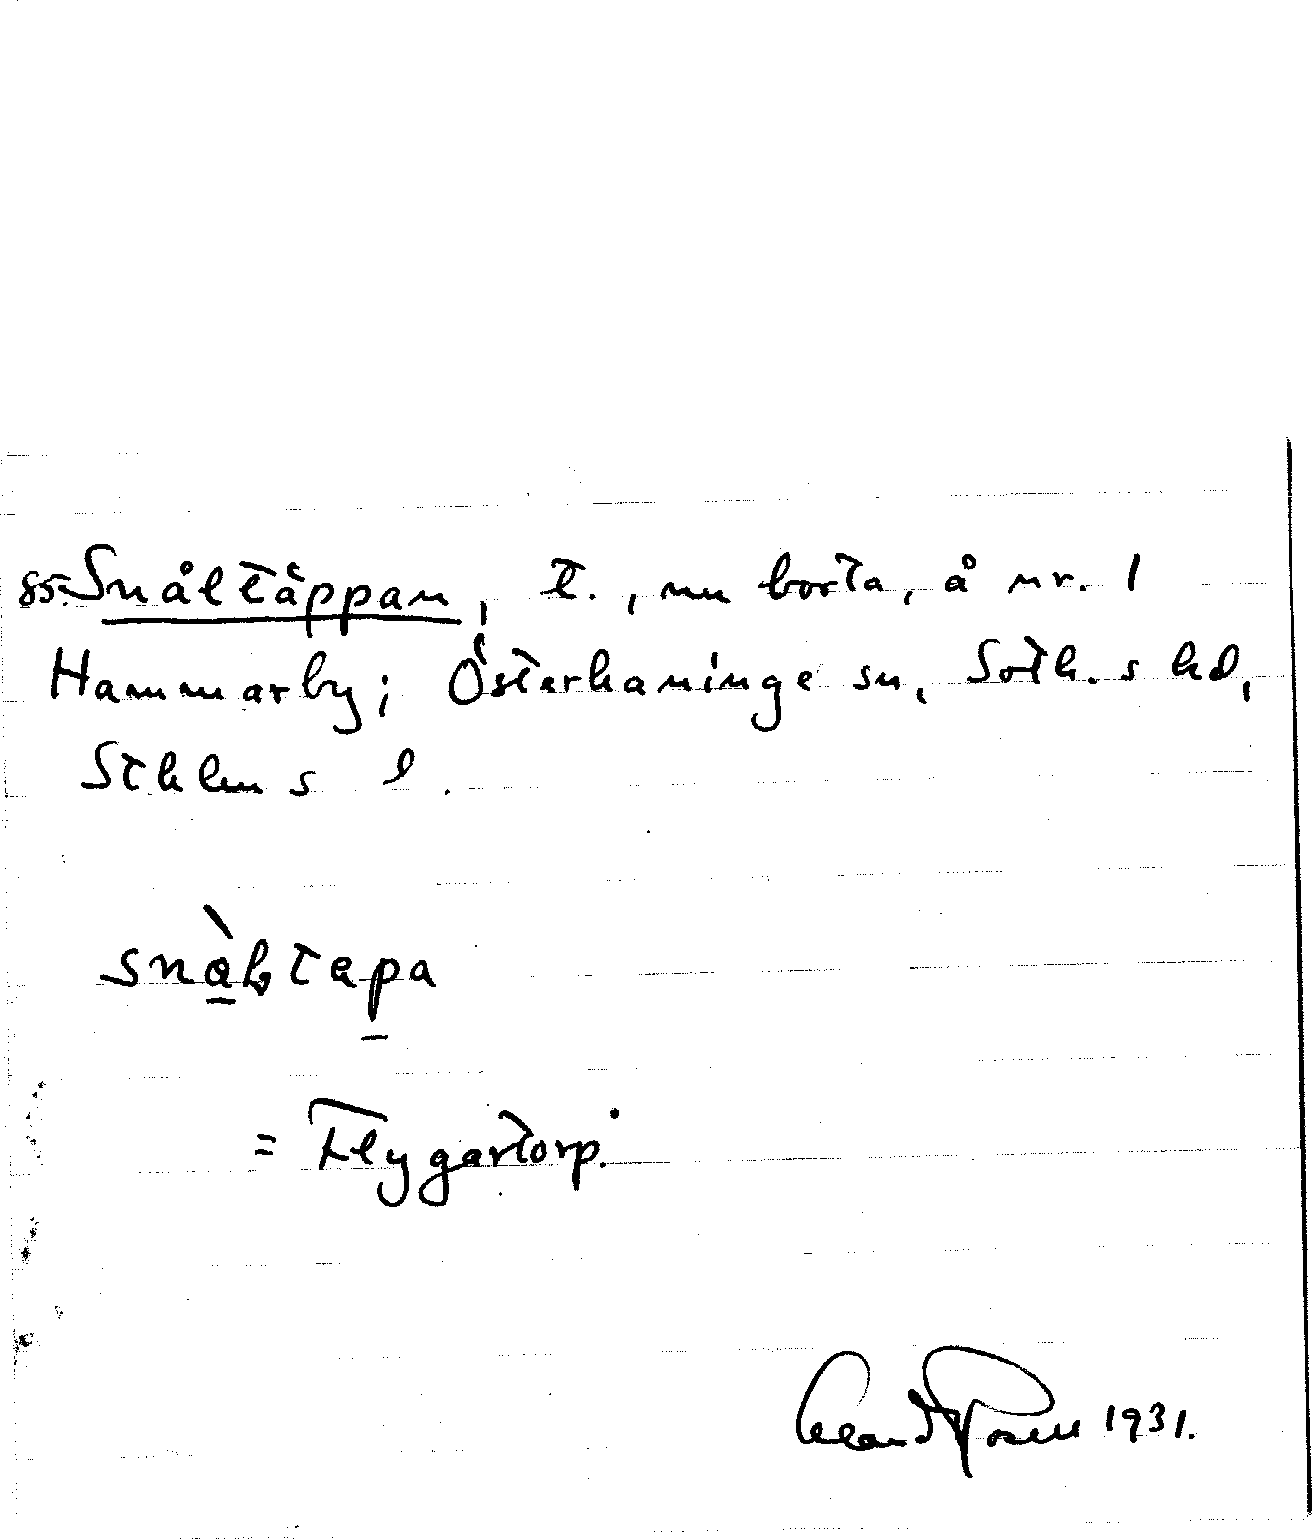 85. Snåltäppan, t., nu borta, å nr. 1
Hammarby; Österhaninge sn, Soth.s hd,
Sthlms l.
snàltepa
= Flygartorp.
1931.